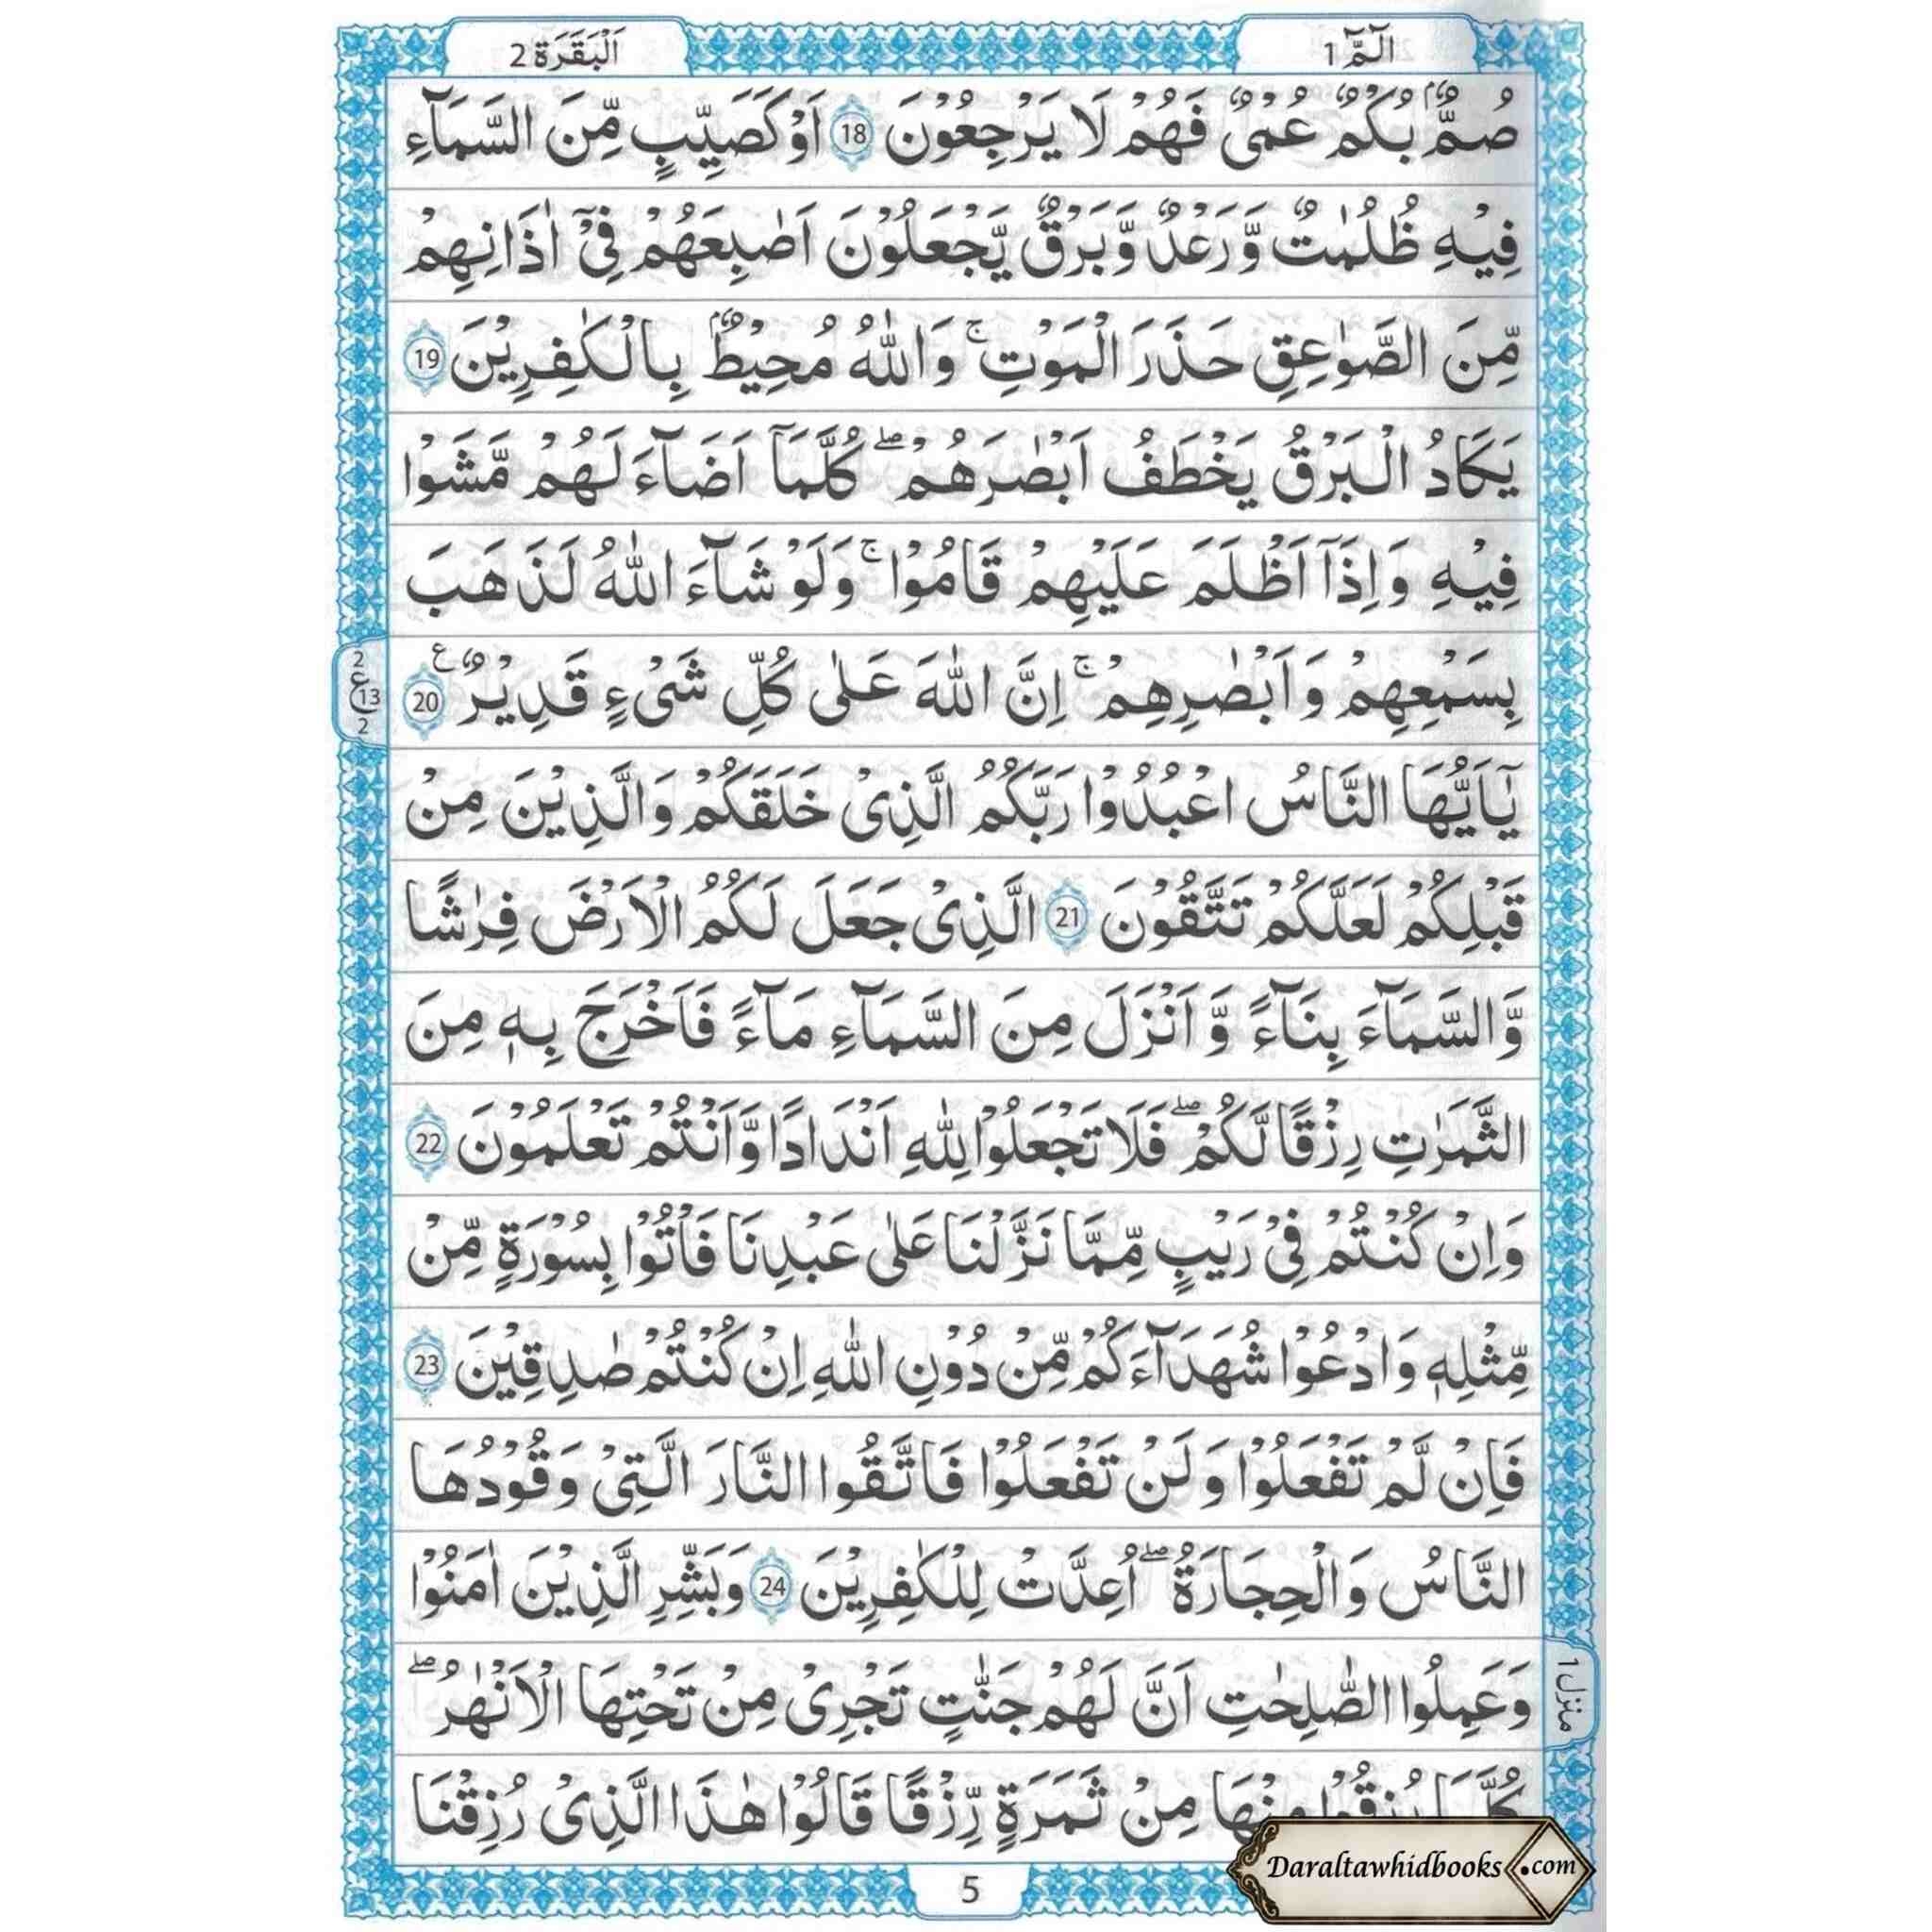 الٓمّٓ 1
اَلْبَقَرَة 2
صُمٌّۢ بُكْمٌ عُمْیٌ فَهُمْ لَا یَرْجِعُوْنَ 18 اَوْ كَصَیِّبٍ مِّنَ السَّمَآءِ
فِیْهِ ظُلُمٰتٌ وَّرَعْدٌ وَّبَرْقٌ یَّجْعَلُوْنَ اَصٰبِعَهُمْ فِیْۤ اٰذَانِهِمْ
مِّنَ الصَّوٰعِقِ حَذَرَ الْمَوْتِ ۚ وَاللّٰهُ مُحِیْطٌۢ بِالْكٰفِرِیْنَ 19
یَكَادُ الْبَرْقُ یَخْطَفُ اَبْصٰرَهُمْ ۖ كُلَّمَاۤ اَضَآءَ لَهُمْ مَّشَوْا
فِیْهِ وَاِذَاۤ اَظْلَمَ عَلَیْهِمْ قَامُوْا ۚ وَلَوْ شَآءَ اللّٰهُ لَذَهَبَ
بِسَمْعِهِمْ وَاَبْصٰرِهِمْ ۚ اِنَّ اللّٰهَ عَلٰی كُلِّ شَیْءٍ قَدِیْرٌ ع 20
2 ع 13 2
یٰۤاَیُّهَا النَّاسُ اعْبُدُوْا رَبَّكُمُ الَّذِیْ خَلَقَكُمْ وَالَّذِیْنَ مِنْ
قَبْلِكُمْ لَعَلَّكُمْ تَتَّقُوْنَ 21 الَّذِیْ جَعَلَ لَكُمُ الْاَرْضَ فِرٰشًا
وَّالسَّمَآءَ بِنَآءً وَّ اَنْزَلَ مِنَ السَّمَآءِ مَآءً فَاَخْرَجَ بِهٖ مِنَ
الثَّمَرٰتِ رِزْقًا لَّكُمْ ۖ فَلَا تَجْعَلُوْا لِلّٰهِ اَنْدَادًا وَّاَنْتُمْ تَعْلَمُوْنَ 22
وَاِنْ كُنْتُمْ فِیْ رَیْبٍ مِّمَّا نَزَّلْنَا عَلٰی عَبْدِنَا فَاْتُوْا بِسُوْرَةٍ مِّنْ
مِّثْلِهٖ وَادْعُوْا شُهَدَآءَكُمْ مِّنْ دُوْنِ اللّٰهِ اِنْ كُنْتُمْ صٰدِقِیْنَ 23
فَاِنْ لَّمْ تَفْعَلُوْا وَلَنْ تَفْعَلُوْا فَاتَّقُوا النَّارَ الَّتِیْ وَقُوْدُهَا
النَّاسُ وَالْحِجَارَةُ ۖ اُعِدَّتْ لِلْكٰفِرِیْنَ 24 وَبَشِّرِ الَّذِیْنَ اٰمَنُوْا
وَعَمِلُوا الصّٰلِحٰتِ اَنَّ لَهُمْ جَنّٰتٍ تَجْرِیْ مِنْ تَحْتِهَا الْاَنْهٰرُ ۖ
منزل 1
كُلَّمَا رُزِقُوْا مِنْهَا مِنْ ثَمَرَةٍ رِّزْقًا قَالُوْا هٰذَا الَّذِیْ رُزِقْنَا
5
Daraltawhidbooks.com